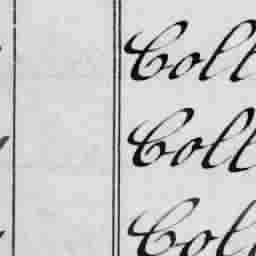 Coll
Coll
Coll